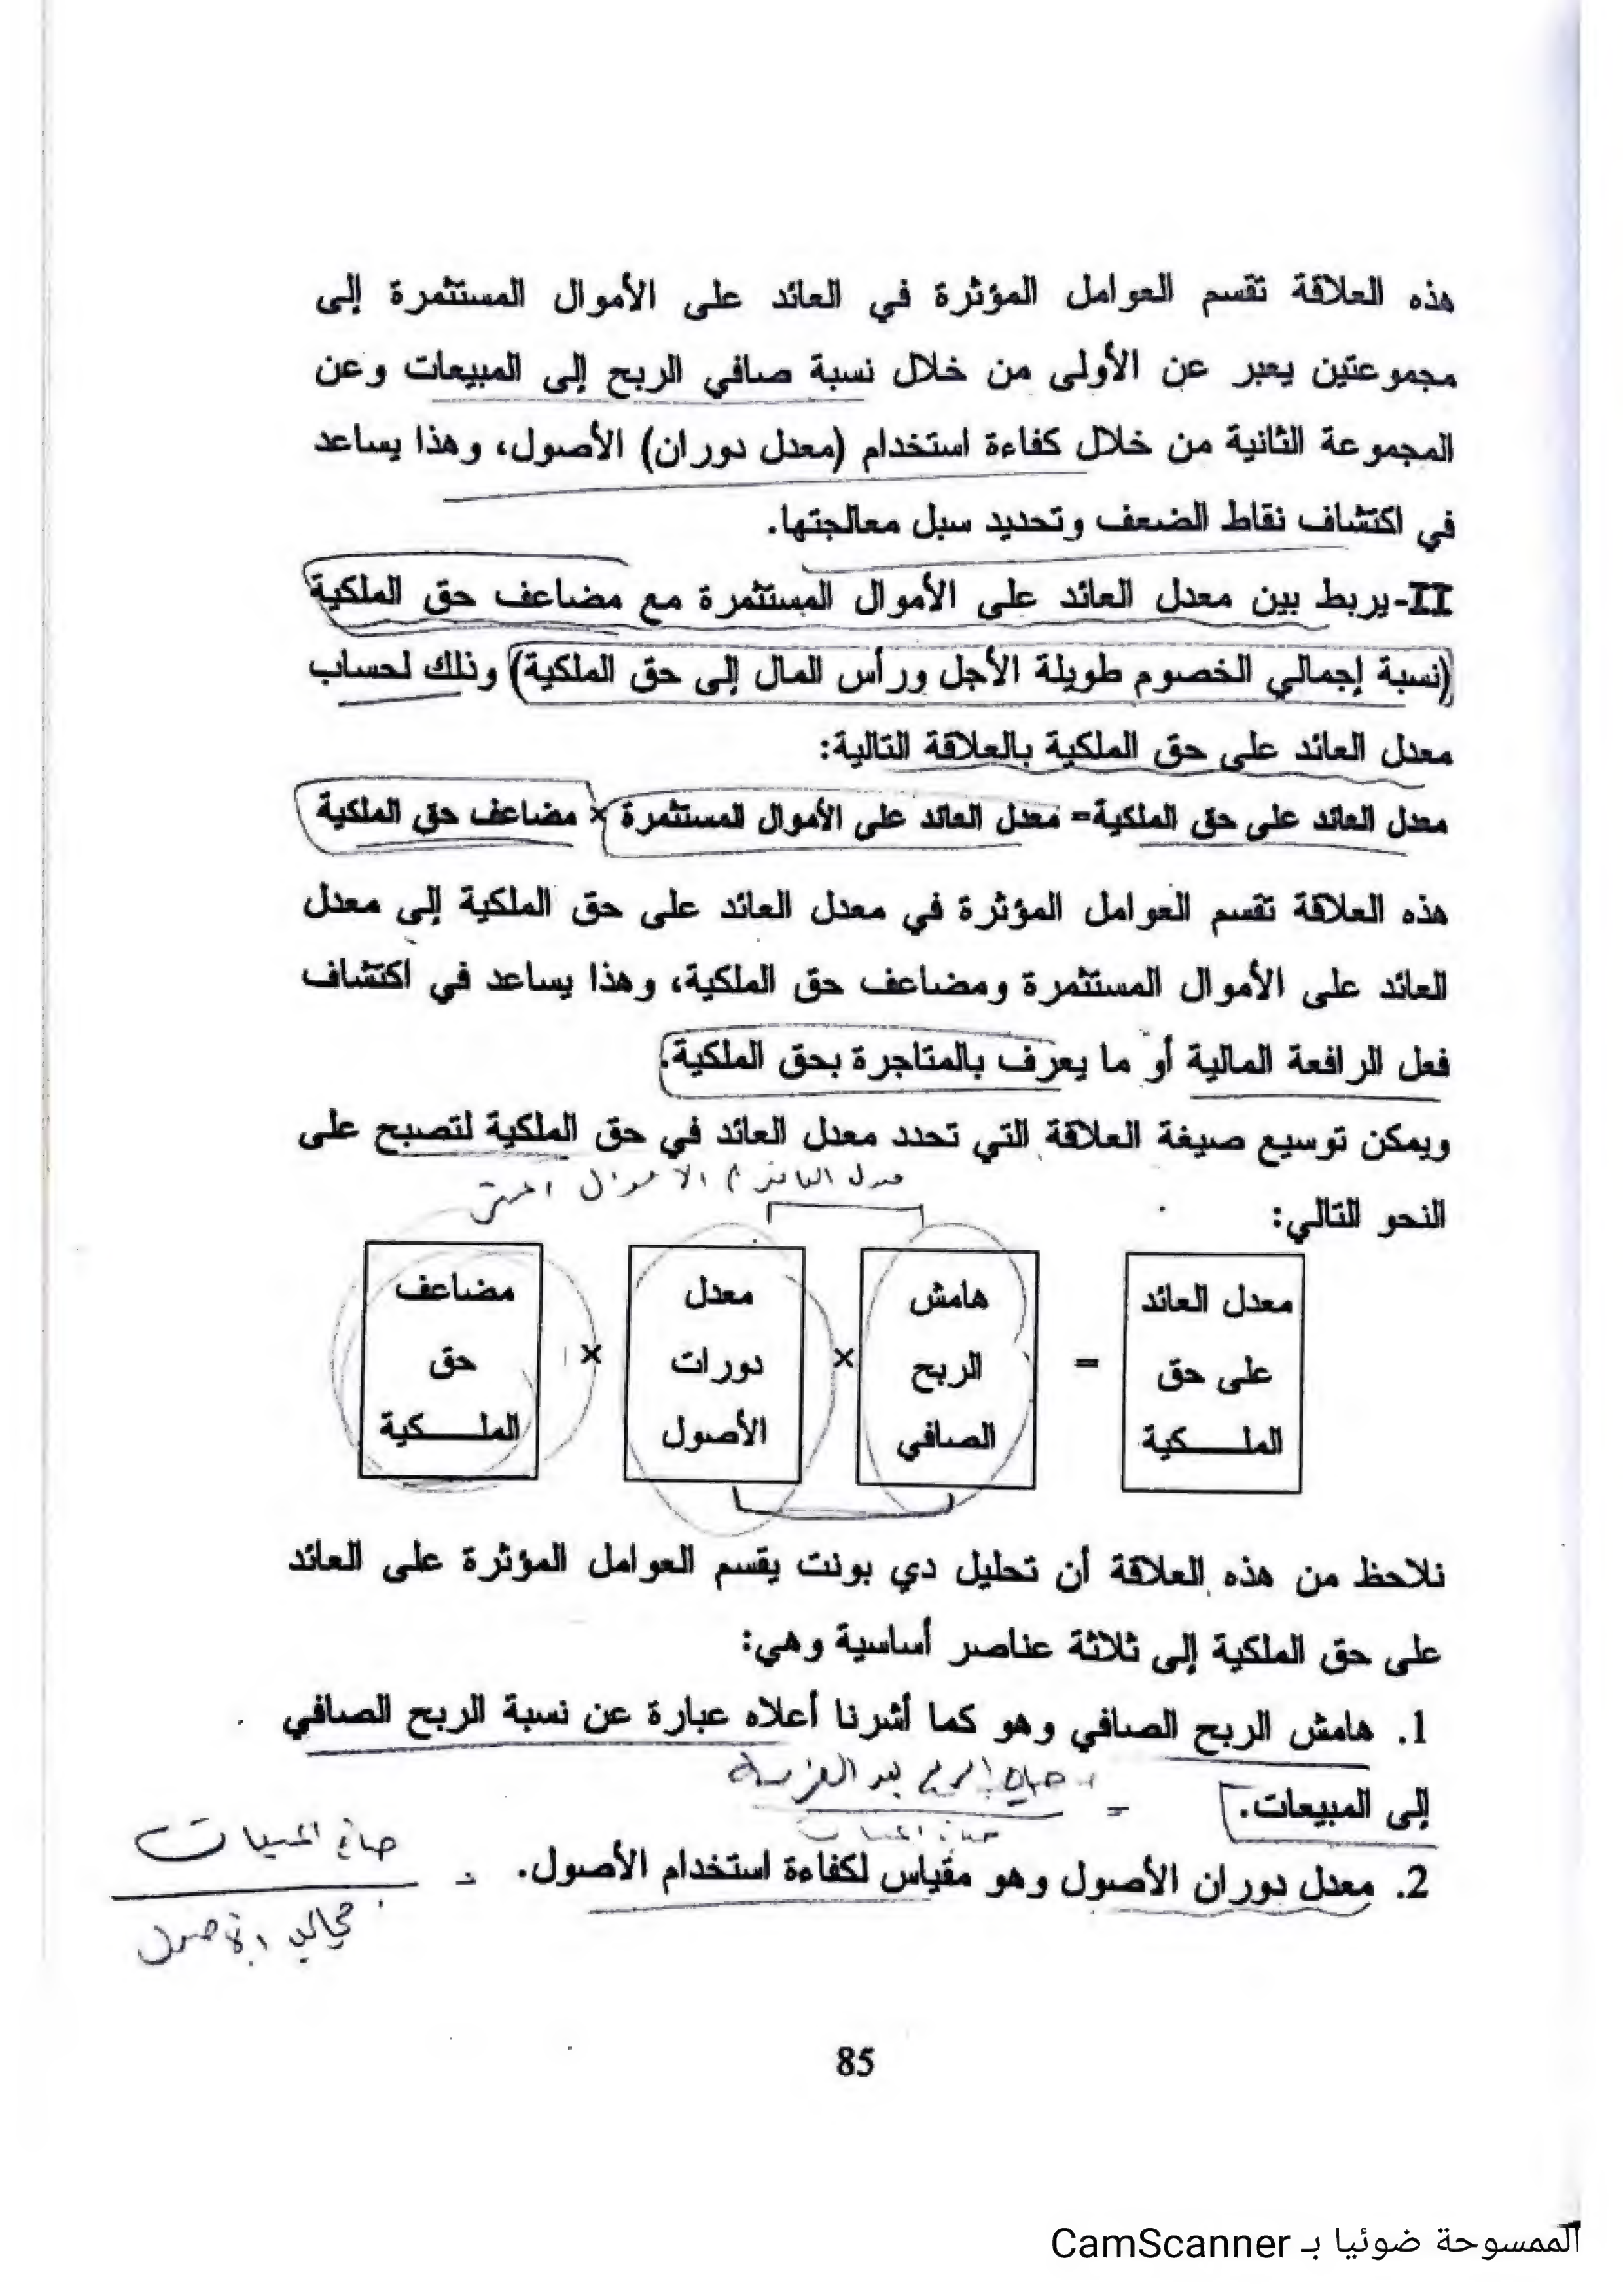 هذه العلاقة تقسم العوامل المؤثرة في العائد على الأموال المستثمرة إلى
مجموعتين يعبر عن الأولى من خلال نسبة صافي الربح إلى المبيعات وعن
المجموعة الثانية من خلال كفاءة استخدام (معدل دوران) الأصول، وهذا يساعد
في اكتشاف نقاط الضعف وتحديد سبل معالجتها.
II-يربط بين معدل العائد على الأموال المستثمرة مع مضاعف حق الملكية
(نسبة إجمالي الخصوم طويلة الأجل ورأس المال إلى حق الملكية) وذلك لحساب
معدل العائد على حق الملكية بالعلاقة التالية:
معدل العائد على حق الملكية= معدل العائد على الأموال المستثمرة × مضاعف حق الملكية
هذه العلاقة تقسم العوامل المؤثرة في معدل العائد على حق الملكية إلى معدل
العائد على الأموال المستثمرة ومضاعف حق الملكية، وهذا يساعد في اكتشاف
فعل الرافعة المالية أو ما يعرف بالمتاجرة بحق الملكية.
ويمكن توسيع صيغة العلاقة التي تحدد معدل العائد في حق الملكية لتصبح على
النحو التالي:
معدل العائد على حق الملــــكية = هامش الربح الصافي × معدل دورات الأصول × مضاعف حق الملــــكية
نلاحظ من هذه العلاقة أن تحليل دي بونت يقسم العوامل المؤثرة على العائد
على حق الملكية إلى ثلاثة عناصر أساسية وهي:
1. هامش الربح الصافي وهو كما أشرنا أعلاه عبارة عن نسبة الربح الصافي
إلى المبيعات. = صافي الربح بعد الضريبة
صافي المبيعات
2. معدل دوران الأصول وهو مقياس لكفاءة استخدام الأصول. = صافي المبيعات
الأصول
85
الممسوحة ضوئيا بـ CamScanner